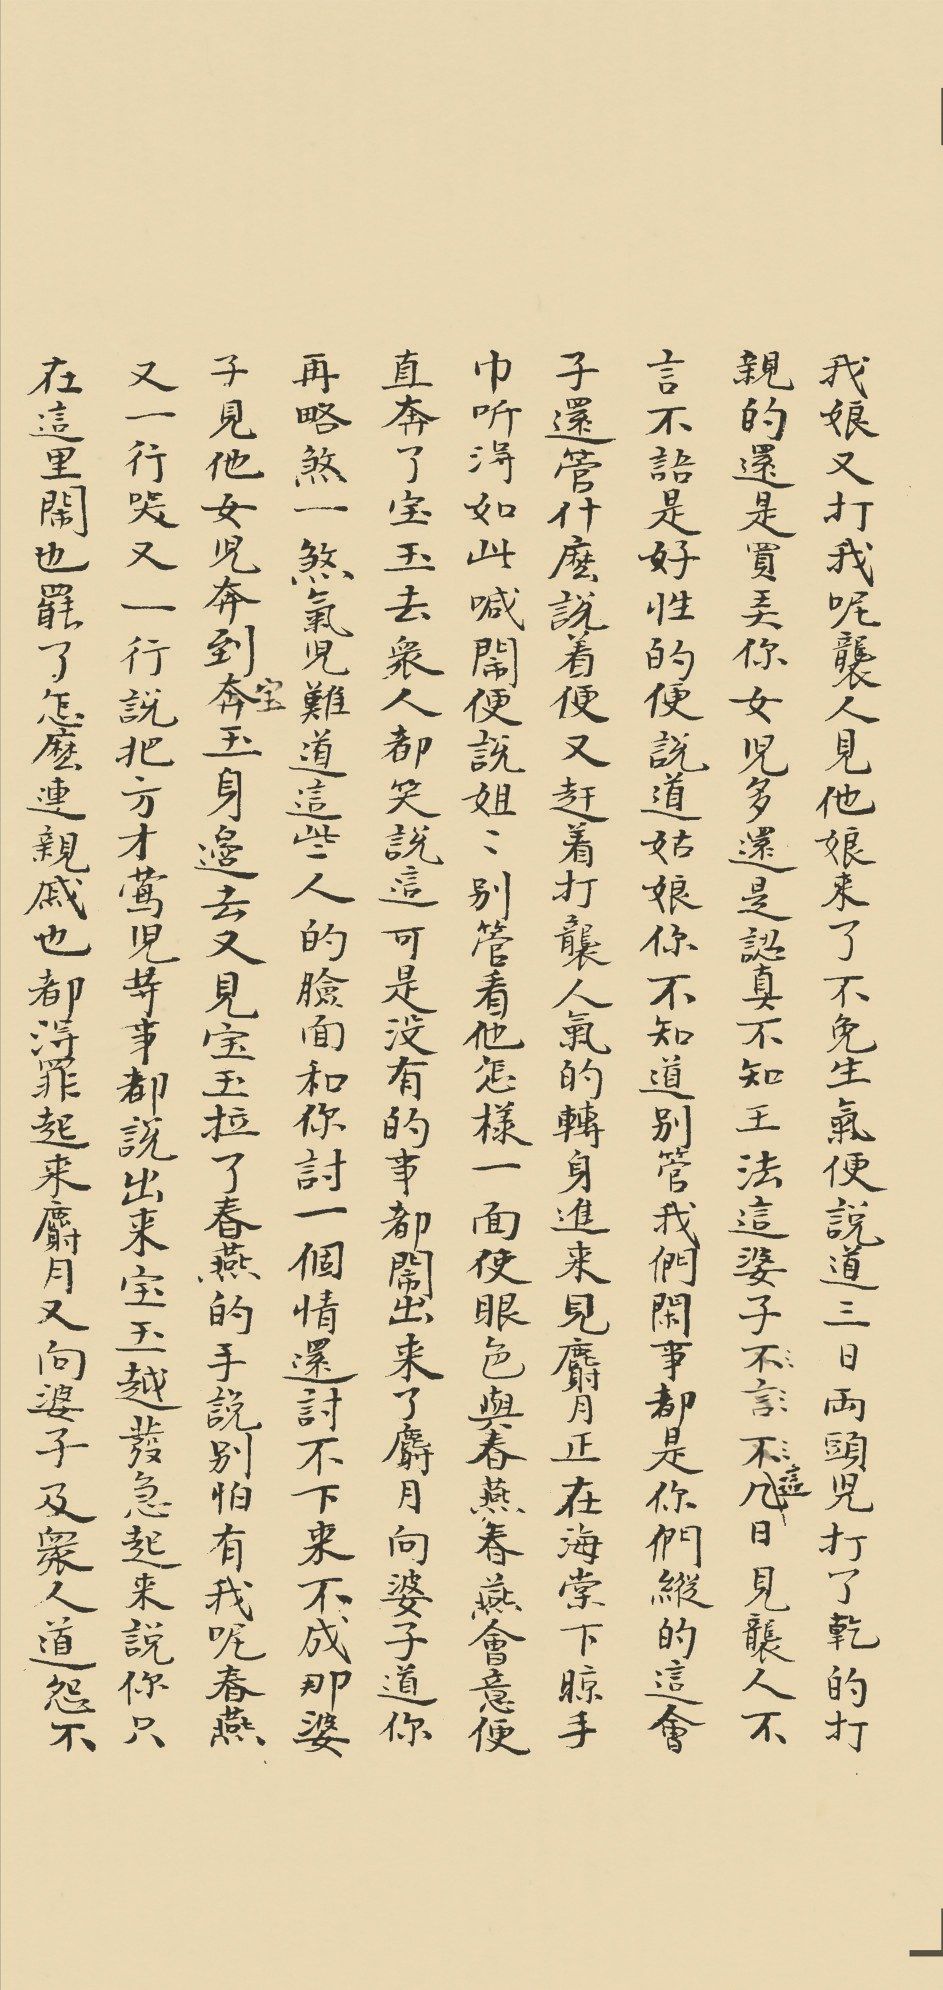 我娘又打我呢襲人見他娘来了不免生氣便說道三日両頭児打了乾的打
親的還是買弄你女児多還是認真不知王法這婆子不言不這几日見襲人不
言不語是好性的便說道姑娘你不知道别管我們閑事都是你們縱的這會
子還管什麽說着便又赶着打襲人氣的轉身進来見麝月正在海棠下晾手
巾听淂如此喊鬧便說姐〻别管看他怎様一面使眼色與春燕春燕會意便
直奔了宝玉去衆人都笑說這可是没有的事都鬧出来了麝月向婆子道你
再略煞一煞氣児難道這些人的臉面和你討一個情還討不下来不成那婆
子見他女児奔到奔宝玉身邉去又見宝玉拉了春燕的手說别怕有我呢春燕
又一行哭又一行說把方才鶯児䓁事都說出来宝玉越發急起来說你只
在這里鬧也罷了怎麽連親戚也都淂罪起来麝月又向婆子及衆人道怨不